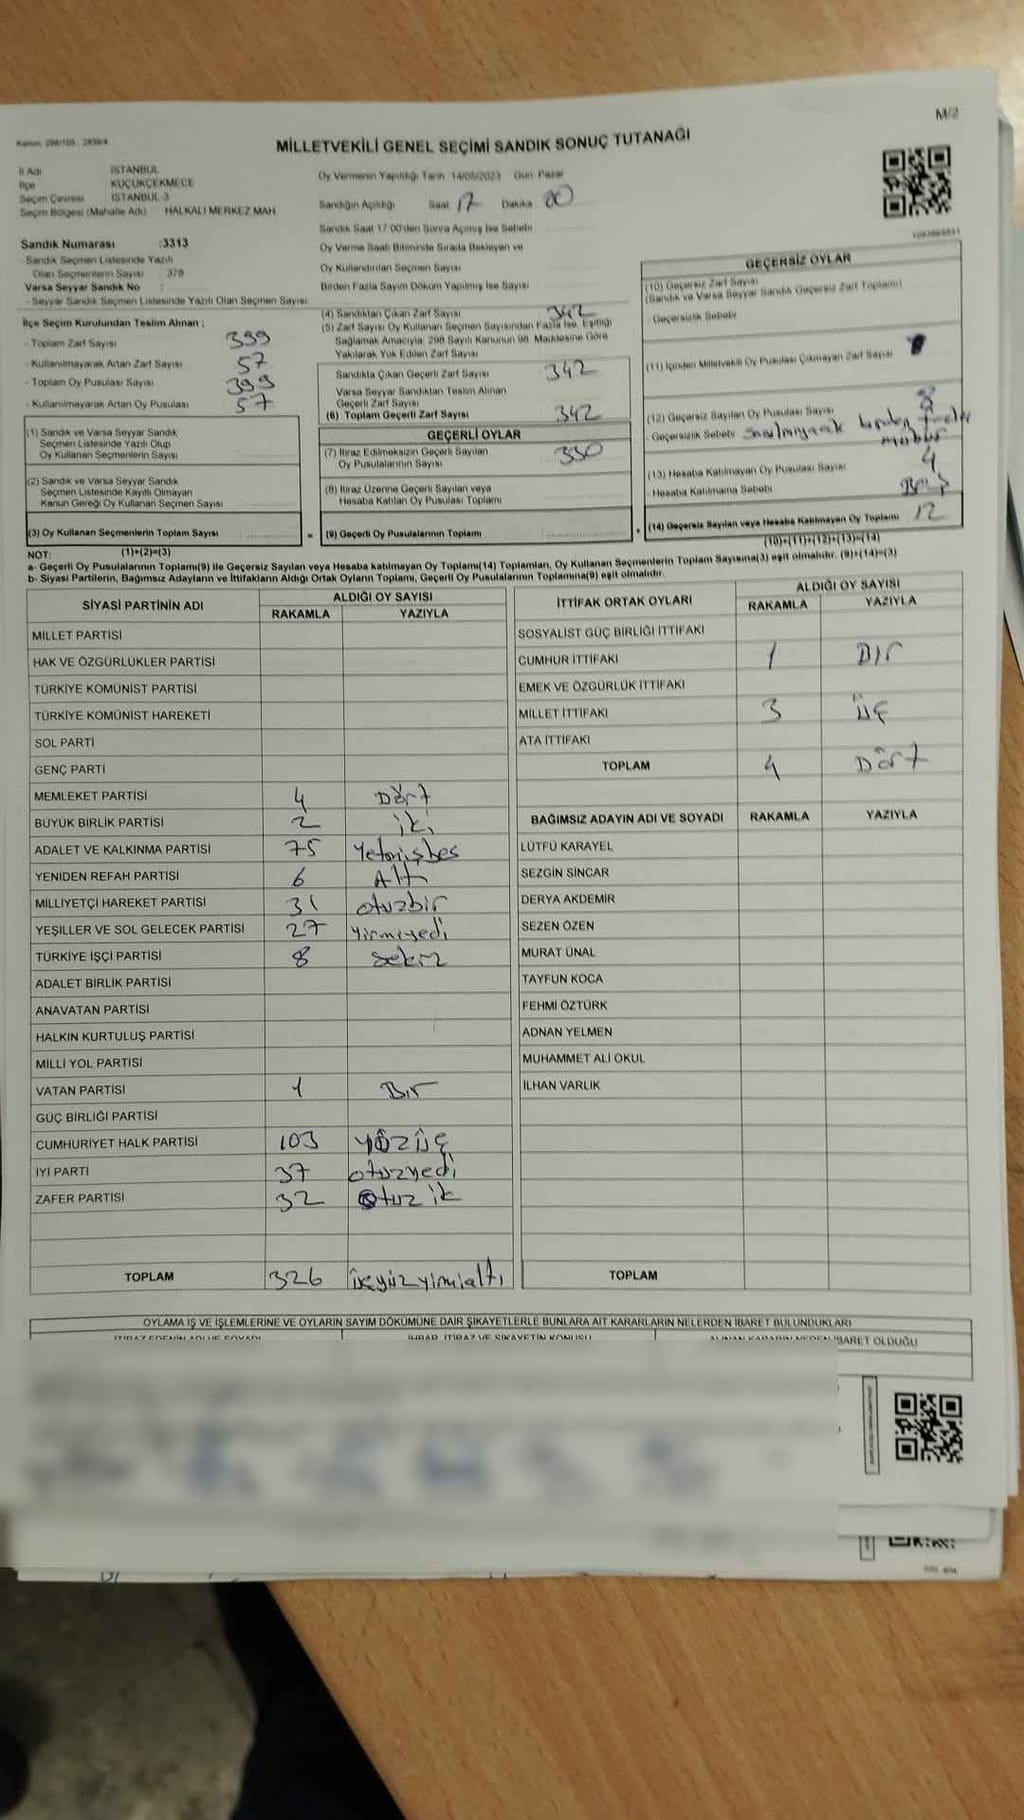 M/2
MİLLETVEKİLİ GENEL SEÇİMİ SANDIK SONUÇ TUTANAĞI
İl Adı İSTANBUL
İlçe KÜÇÜKÇEKMECE
Seçim Çevresi İSTANBUL-3
Seçim Bölgesi (Mahalle Adı) HALKALI MERKEZ MAH.
Oy Vermenin Yapıldığı Tarih 14/05/2023 Gün Pazar
Sandığın Açıldığı Saat 17 Dakika 00
Sandık Saat 17:00'den Sonra Açılmış İse Sebebi
Oy Verme Saati Bitiminde Sırada Bekleyen ve
Oy Kullandırılan Seçmen Sayısı
Birden Fazla Sayım Döküm Yapılmış İse Sayısı
Sandık Numarası :3313
Sandık Seçmen Listesinde Yazılı
Olan Seçmenlerin Sayısı 378
Varsa Seyyar Sandık No :
- Seyyar Sandık Seçmen Listesinde Yazılı Olan Seçmen Sayısı
İlçe Seçim Kurulundan Teslim Alınan ;
- Toplam Zarf Sayısı 399
- Kullanılmayarak Artan Zarf Sayısı 57
- Toplam Oy Pusulası Sayısı 399
- Kullanılmayarak Artan Oy Pusulası 57
(1) Sandık ve Varsa Seyyar Sandık
Seçmen Listesinde Yazılı Olup
Oy Kullanan Seçmenlerin Sayısı
(2) Sandık ve Varsa Seyyar Sandık
Seçmen Listesinde Kayıtlı Olmayan
Kanun Gereği Oy Kullanan Seçmen Sayısı
(3) Oy Kullanan Seçmenlerin Toplam Sayısı
(1)+(2)=(3)
(4) Sandıktan Çıkan Zarf Sayısı 342
(5) Zarf Sayısı Oy Kullanan Seçmen Sayısından Fazla İse, Eşitliği
Sağlamak Amacıyla, 298 Sayılı Kanunun 98. Maddesine Göre
Yakılarak Yok Edilen Zarf Sayısı
Sandıkta Çıkan Geçerli Zarf Sayısı 342
Varsa Seyyar Sandıktan Teslim Alınan
Geçerli Zarf Sayısı
(6) Toplam Geçerli Zarf Sayısı 342
GEÇERLİ OYLAR
(7) İtiraz Edilmeksizin Geçerli Sayılan
Oy Pusulalarının Sayısı 330
(8) İtiraz Üzerine Geçerli Sayılan veya
Hesaba Katılan Oy Pusulası Toplamı
(9) Geçerli Oy Pusulalarının Toplamı
GEÇERSİZ OYLAR
(10) Geçersiz Zarf Sayısı
(Sandık ve Varsa Seyyar Sandık Geçersiz Zarf Toplamı)
- Geçersizlik Sebebi
(11) İçinden Milletvekili Oy Pusulası Çıkmayan Zarf Sayısı
(12) Geçersiz Sayılan Oy Pusulası Sayısı 8
- Geçersizlik Sebebi
(13) Hesaba Katılmayan Oy Pusulası Sayısı 4
- Hesaba Katılmama Sebebi Boş
(14) Geçersiz Sayılan veya Hesaba Katılmayan Oy Toplamı 12
(10)+(11)+(12)+(13)=(14)
NOT:
a- Geçerli Oy Pusulalarının Toplamı(9) ile Geçersiz Sayılan veya Hesaba katılmayan Oy Toplamı(14) Toplamları, Oy Kullanan Seçmenlerin Toplam Sayısına(3) eşit olmalıdır. (9)+(14)=(3)
b- Siyasi Partilerin, Bağımsız Adayların ve İttifakların Aldığı Ortak Oyların Toplamı, Geçerli Oy Pusulalarının Toplamına(9) eşit olmalıdır.
SİYASİ PARTİNİN ADI ALDIĞI OY SAYISI
RAKAMLA YAZIYLA
MİLLET PARTİSİ
HAK VE ÖZGÜRLÜKLER PARTİSİ
TÜRKİYE KOMÜNİST PARTİSİ
TÜRKİYE KOMÜNİST HAREKETİ
SOL PARTİ
GENÇ PARTİ
MEMLEKET PARTİSİ 4 Dört
BÜYÜK BİRLİK PARTİSİ 2 iki
ADALET VE KALKINMA PARTİSİ 75 Yetmişbes
YENİDEN REFAH PARTİSİ 6 Altı
MİLLİYETÇİ HAREKET PARTİSİ 31 otuzbir
YEŞİLLER VE SOL GELECEK PARTİSİ 27 Yirmiyedi
TÜRKİYE İŞÇİ PARTİSİ 8 Sekiz
ADALET BİRLİK PARTİSİ
ANAVATAN PARTİSİ
HALKIN KURTULUŞ PARTİSİ
MİLLİ YOL PARTİSİ
VATAN PARTİSİ 1 Bir
GÜÇ BİRLİĞİ PARTİSİ
CUMHURİYET HALK PARTİSİ 103 Yüzüç
İYİ PARTİ 37 otuzyedi
ZAFER PARTİSİ 32 Otuz ik
TOPLAM 326 üçyüzyimialtı
İTTİFAK ORTAK OYLARI ALDIĞI OY SAYISI
RAKAMLA YAZIYLA
SOSYALİST GÜÇ BİRLİĞİ İTTİFAKI
CUMHUR İTTİFAKI 1 Bir
EMEK VE ÖZGÜRLÜK İTTİFAKI
MİLLET İTTİFAKI 3 üç
ATA İTTİFAKI
TOPLAM 4 Dört
BAĞIMSIZ ADAYIN ADI VE SOYADI RAKAMLA YAZIYLA
LÜTFÜ KARAYEL
SEZGİN SİNCAR
DERYA AKDEMİR
SEZEN ÖZEN
MURAT ÜNAL
TAYFUN KOCA
FEHMİ ÖZTÜRK
ADNAN YELMEN
MUHAMMET ALİ OKUL
İLHAN VARLIK
TOPLAM
OYLAMA İŞ VE İŞLEMLERİNE VE OYLARIN SAYIM DÖKÜMÜNE DAİR ŞİKAYETLERLE BUNLARA AİT KARARLARIN NELERDEN İBARET BULUNDUKLARI
İTİRAZ EDENİN ADI VE SOYADI İHBAR, İTİRAZ VE ŞİKAYETİN KONUSU ALINAN KARARIN NEDEN İBARET OLDUĞU